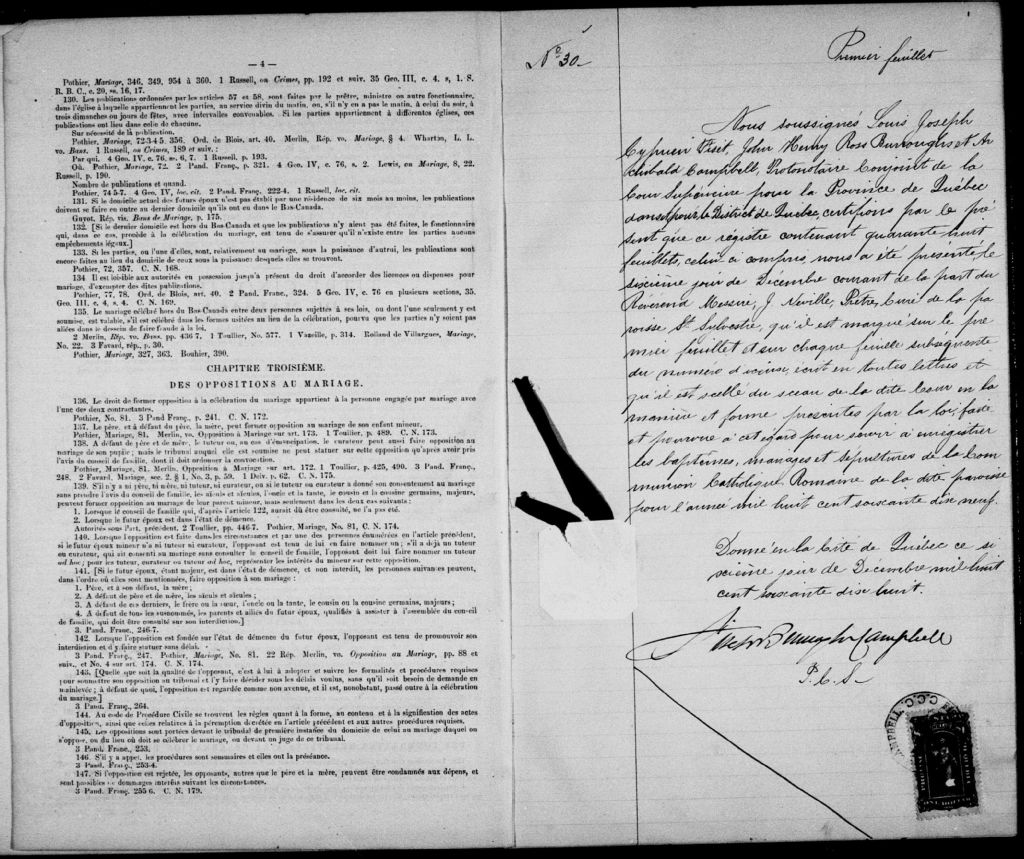 — 4 —
Pothier, Mariage, 346, 349, 954 à 360. 1 Russell, on Crimes, pp. 192 et suiv. 35 Geo. III, c. 4. s, 1. S.
R. B. C., c. 20, ss. 16, 17.
130. Les publications ordonnées par les articles 57 et 58, sont faites par le prêtre, ministre ou autre fonctionnaire,
dans l'église à laquelle appartiennent les parties, au service divin du matin, ou, s'il n'y en a pas le matin, à celui du soir, à
trois dimanches ou jours de fêtes, avec intervalles convenables. Si les parties appartiennent à différentes églises, ces
publications ont lieu dans celle de chacune.
Sur nécessité de la publication.
Pothier, Mariage, 72-3-4-5. 356. Ord. de Blois, art. 40. Merlin, Rép. vo. Mariage, § 4. Wharton, L. L.
vo. Bans. 1 Russell, on Crimes, 189 et suiv. :
Par qui. 4 Geo. IV, c. 76, ss. 6, 7. 1 Russell, p. 193.
Où. Pothier, Mariage, 72. 2 Pand. Franç., p. 321. 4 Geo. IV, c. 76, s. 2. Lewis, on Mariage, 8, 22.
Russell, p. 190.
Nombre de publications et quand.
Pothier, 74 5-7. 4 Geo. IV, loc. cit. 2 Pand. Franç., 222-4. 1 Russell, loc. cit.
131. Si le domicile actuel des futurs époux n'est pas établi par une résidence de six mois au moins, les publications
doivent se faire en outre au dernier domicile qu'ils ont eu dans le Bas-Canada.
Guyot, Rép. vis. Bans de Mariage, p. 175.
132. [Si le dernier domicile est hors du Bas-Canada et que les publications n'y aient pas été faites, le fonctionnaire
qui, dans ce cas, procède à la célébration du mariage, est tenu de s'assurer qu'il n'existe entre les parties aucuns
empêchements légaux.]
133. Si les parties, ou l'une d'elles, sont, relativement au mariage, sous la puissance d'autrui, les publications sont
encore faites au lieu du domicile de ceux sous la puissance desquels elles se trouvent.
Pothier, 72, 357. C. N. 168.
134 Il est loisible aux autorités en possession jusqu'à présent du droit d'accorder des licences ou dispenses pour
mariage, d'exempter des dites publications.
Pothier, 77, 78. Ord. de Blois, art. 40. 2 Pand. Franc., 324. 5 Geo. IV, c. 76 en plusieurs sections, 35.
Geo. III, c. 4, s. 4. C. N. 169.
135. Le mariage célébré hors du Bas-Canada entre deux personnes sujettes à ses lois, ou dont l'une seulement y est
soumise, est valable, s'il est célébré dans les formes usitées au lieu de la célébration, pourvu que les parties n'y soient pas
allées dans le dessein de faire fraude à la loi.
2 Merlin, Rép. vo. Bans, pp. 436 7. 1 Toullier, No. 577. 1 Vazeille, p. 314. Rolland de Villargues, Mariage,
No. 22. 3 Favard, rép., p. 30.
Pothier, Mariage, 327, 363. Bouhier, 390.
CHAPITRE TROISIÈME.
DES OPPOSITIONS AU MARIAGE.
136. Le droit de former opposition à la célébration du mariage appartient à la personne engagée par mariage avec
l'une des deux contractantes.
Pothier, No. 81. 3 Pand Franç., p. 241. C. N. 172.
137. Le père, et à défaut du père, la mère, peut former opposition au mariage de son enfant mineur.
Pothier, Mariage, 81. Merlin, vo. Opposition à Mariage sur art. 173. 1 Touillier, p. 489. C. N. 173.
138. A défaut de père et de mère, le tuteur ou, au cas d'émancipation, le curateur peut aussi faire opposition au
mariage de son pupile ; mais le tribunal auquel elle est soumise ne peut statuer sur cette opposition qu'après avoir pris
l'avis du conseil de famille, dont il doit ordonner la convocation.
Pothier, Mariage, 81. Merlin, Opposition à Mariage sur art. 172. 1 Toullier, p. 425, 490. 3 Pand. Franç.,
248. 2 Favard, Mariage, sec. 2, § 1, No. 3, p. 59. 1 Delv. p. 62. C. N. 175.
139. S'il n'y a ni père, ni mère, ni tuteur, ni curateur, ou si le tuteur ou curateur a donné son consentement au mariage
sans prendre l'avis du conseil de famille, les aïeuls et aïeules, l'oncle et la tante, le cousin et la cousine germains, majeurs,
peuvent former opposition au mariage de leur parent mineur, mais seulement dans les deux cas suivants :
1. Lorsque le conseil de famille qui, d'après l'article 122, aurait dû être consulté, ne l'a pas été.
2. Lorsque le futur époux est dans l'état de démence.
Autorités sous l'art. précédent. 2 Toullier, pp. 446-7. Pothier, Mariage, No. 81, C. N. 174.
140. Lorsque l'opposition est faite dans les circonstances et par une des personnes énumérées en l'article précédent,
si le futur époux mineur n'a ni tuteur ni curateur, l'opposant est tenu de lui en faire nommer un ; s'il a déjà un tuteur
ou curateur, qui ait consenti au mariage sans consulter le conseil de famille, l'opposant doit lui faire nommer un tuteur
ad hoc ; pour les tuteur, curateur ou tuteur ad hoc, représenter les intérêts du mineur sur cette opposition.
141. [Si le futur époux, étant majeur, est dans l'état de démence, et non interdit, les personnes suivantes peuvent,
dans l'ordre où elles sont mentionnées, faire opposition à son mariage :
1. Père, et à son défaut, la mère ;
2. A défaut de père et de mère, les aïeuls et aïeules ;
3. A défaut de ces derniers, le frère ou la sœur, l'oncle ou la tante, le cousin ou la cousine germains, majeurs ;
4. A défaut de tous les susnommés, les parents et alliés du futur époux, qualifiés à assister à l'assemblée du conseil
de famille, qui doit être consulté sur son interdiction.]
3. Pand. Franc., 246-7.
142. Lorsque l'opposition est fondée sur l'état de démence du futur époux, l'opposant est tenu de promouvoir son
interdiction et d'y faire statuer sans délai.
3 Pand. Franç., 247. Pothier, Mariage, No. 81. 22 Rép. Merlin, vo. Opposition au Mariage, pp. 88 et
suiv., et No. 4 sur art. 174. C. N. 174.
143. [Quelle que soit la qualité de l'opposant, c'est à lui à adopter et suivre les formalités et procédures requises
pour soumettre son opposition au tribunal et l'y faire décider sous les délais voulus, sans qu'il soit besoin de demande en
mainlevée ; à défaut de quoi, l'opposition est regardée comme non avenue, et il est, nonobstant, passé outre à la célébration
du mariage.]
3 Pand. Franç., 264.
144. Au code de Procédure Civile se trouvent les règles quant à la forme, au contenu et à la signification des actes
d'opposition, ainsi que celles relatives à la péremption décrétée en l'article précédent et aux autres procédures requises.
145. Les oppositions sont portées devant le tribunal de première instance du domicile de celui au mariage duquel on
s'oppose, ou du lieu où doit se célébrer le mariage, ou devant un juge de ce tribunal.
3 Pand. Franc., 253.
146. S'il y a appel, les procédures sont sommaires et elles ont la préséance.
3 Pand. Franç., 253-4.
147. Si l'opposition est rejetée, les opposants, autres que le père et la mère, peuvent être condamnés aux dépens, et
sont passibles de dommages intérêts suivant les circonstances.
3 Pand. Franç. 255 6. C. N. 179.
No 30
Premier feuillet
Nous soussignés Louis Joseph
Cyprien Fiset, John Henry Ross Burroughs et Ar
chibald Campbell, Protonotaire Conjoint de la
Cour Supérieure pour la Province de Québec
dans et pour le District de Québec, certifions par le pré
sent que ce régistre contenant quarante huit
feuillets, celui ci compris, nous a été présenté, le
sixième jour de Décembre courant de la part du
Révérend Messire, J. Neville, Prêtre, Curé de la pa
roisse St Sylvestre, qu'il est marqué sur le pre
mier feuillet et sur chaque feuille subsequente
du numéro d'icelui, écrit en toutes lettres et
qu'il est scellé du sceau de la dite Cour en la
manière et forme prescrites par la loi, faite
et pourvue à cet égard pour servir à enregistrer
les baptêmes, mariages et sépultures de la Com
munion Catholique Romaine de la dite paroisse
pour l'année mil huit cent soixante dix neuf.
Donné en la Cité de Québec ce si
xième jour de Decembre mil huit
cent soixante dix huit.
Fiset Burroughs Campbell
P. C. S.
CAMPBELL
ONE DOLLAR